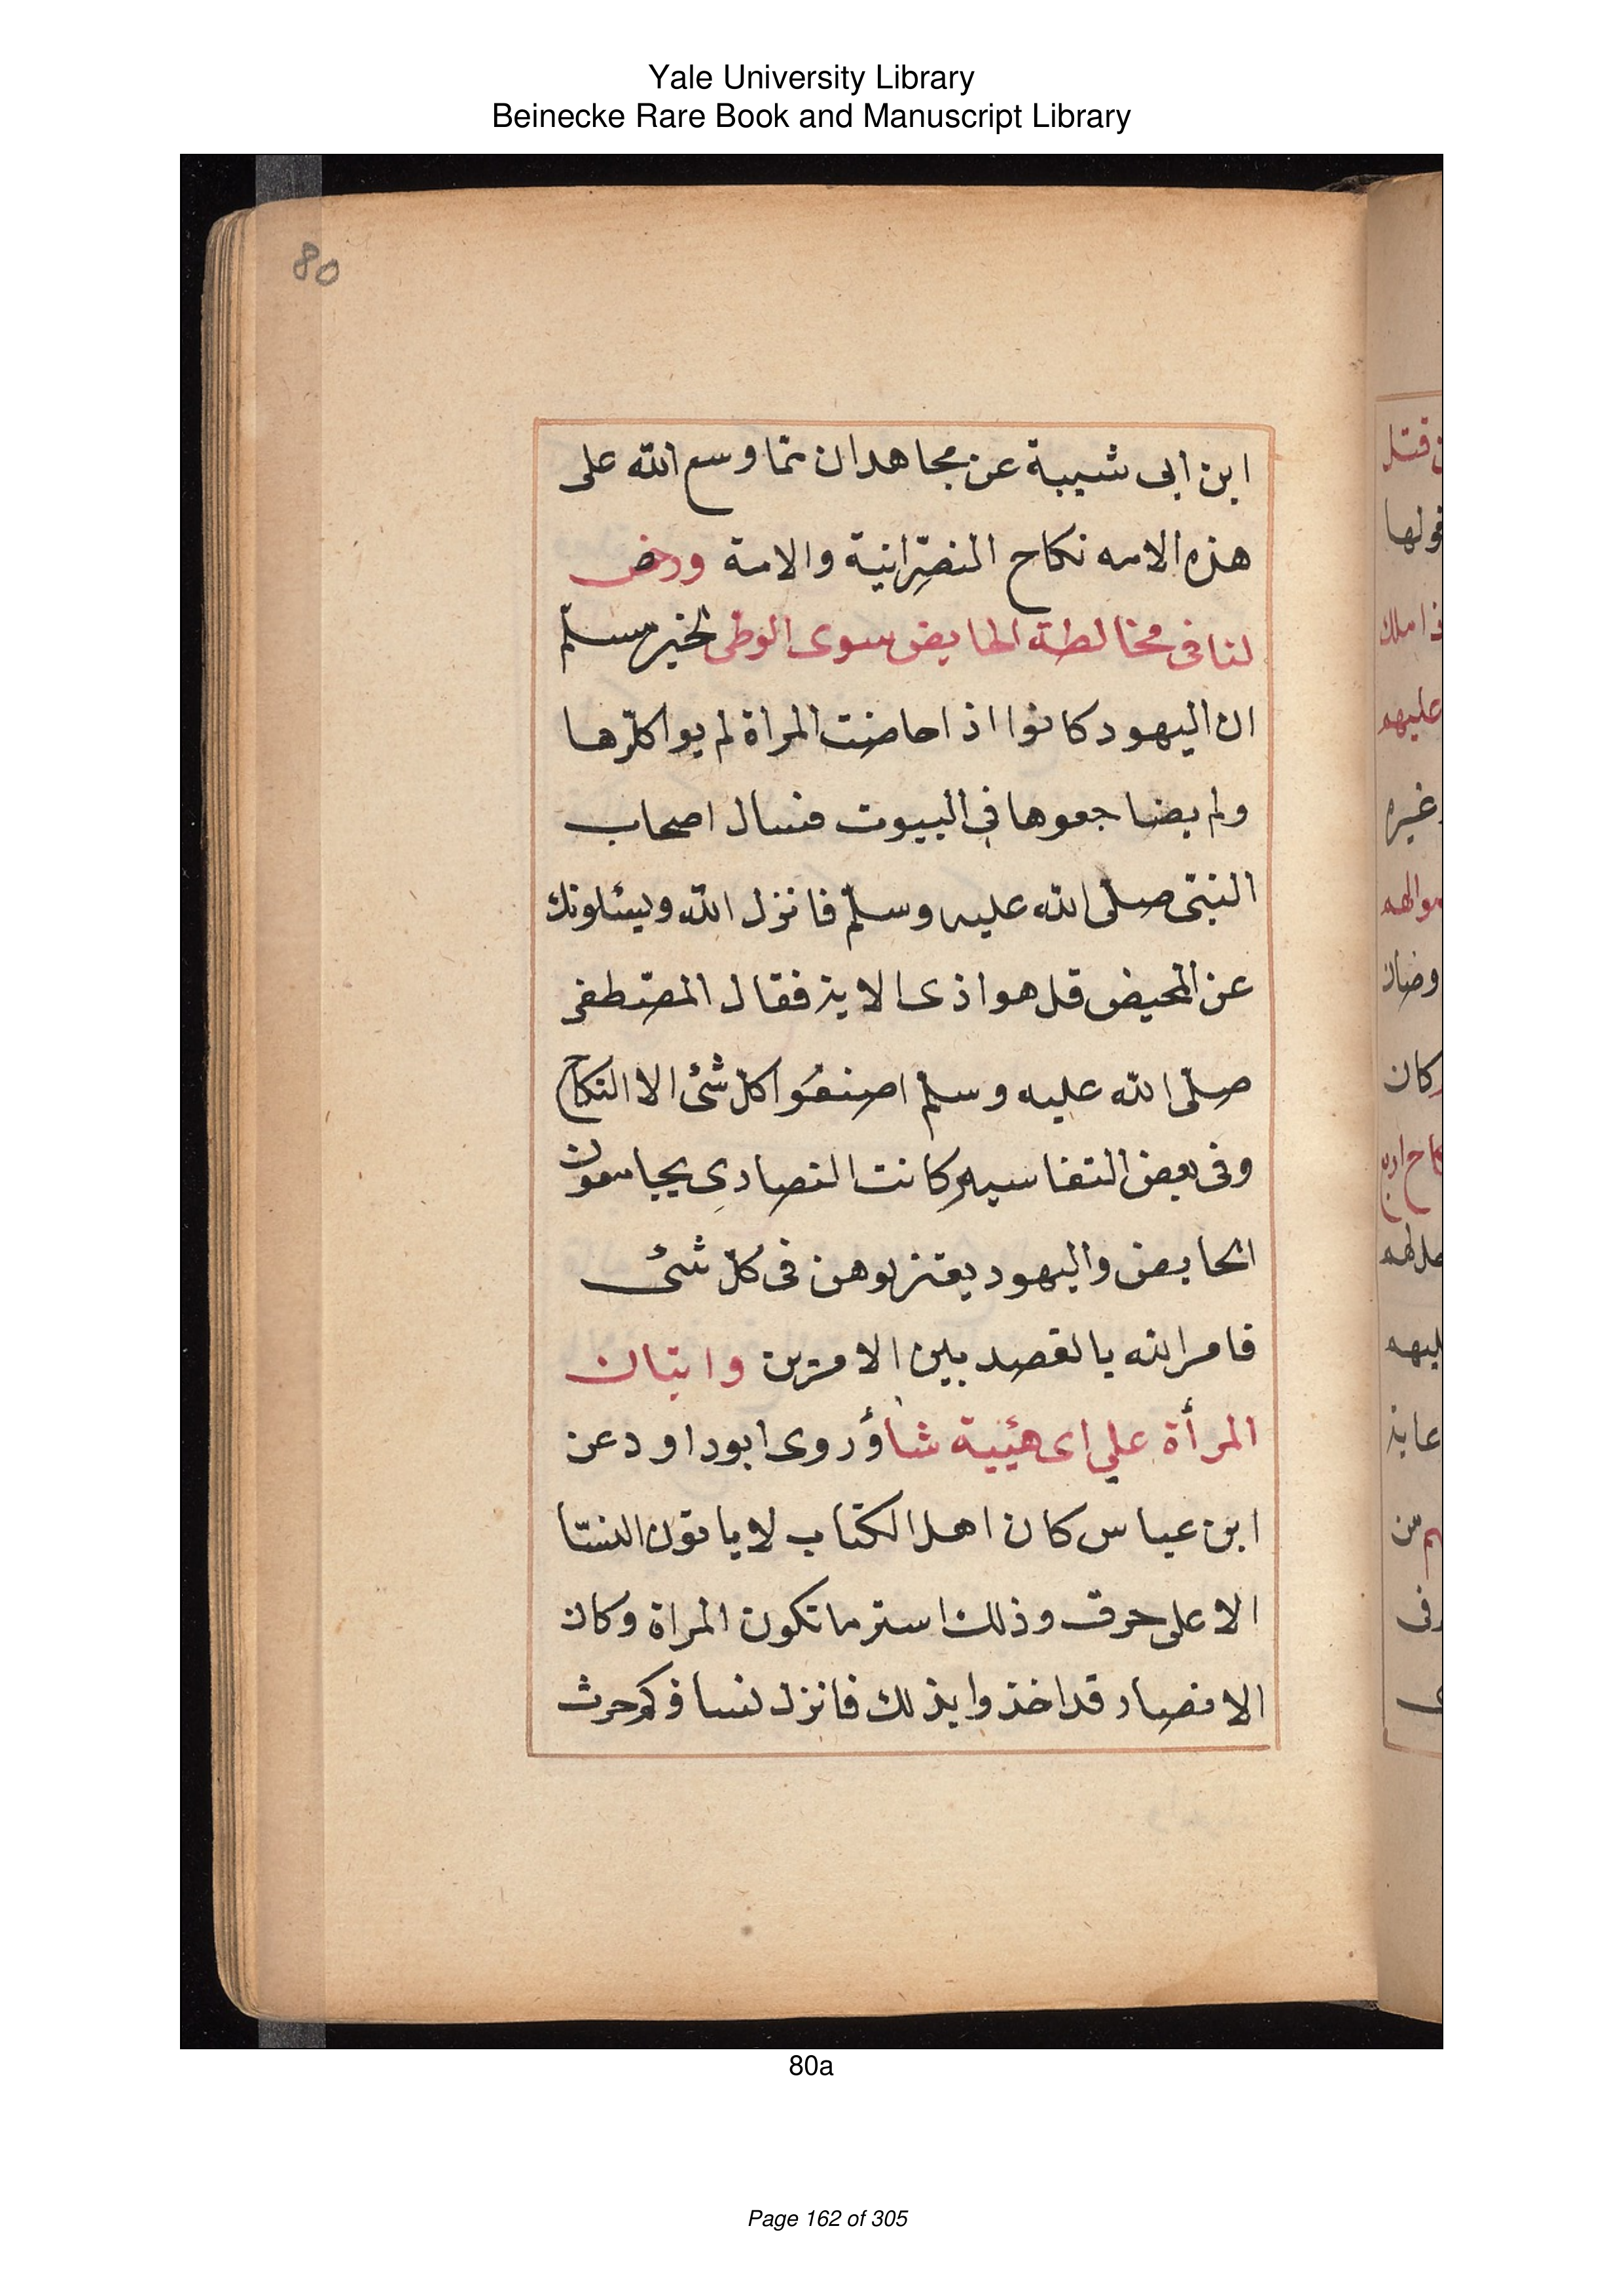 Yale University Library
Beinecke Rare Book and Manuscript Library
80
ابن ابى شيبة عن مجاهد ان مما وسع الله على
هذه الامه نكاح النصرانية والامة ورخص
لنا فى مخالطة الحايض سوى الوطى لخبر مسلم
ان اليهود كانوا اذا حاضت المراة لم يواكلوها
ولم يضاجعوها في البيوت فسال اصحاب
النبى صلى الله عليه وسلم فانزل الله ويسئلونك
عن المحيض قل هو اذى الاية فقال المصطفى
صلى الله عليه وسلم اصنعوا كل شئ الا النكاح
وفى بعض التفاسير كانت النصارى يجامعون
الحايض واليهود يعتزلوهن فى كل شئ
فامر الله بالقصد بين الامرين واتيان
المرأة علي اى هيئة شاؤ روى ابو داود عن
ابن عباس كان اهل الكتاب لا ياتون النسا
الا على حرف وذلك استر ما تكون المراة وكان
الانصار قد اخذوا بذلك فانزل نساؤكم حرث
80a
Page 162 of 305